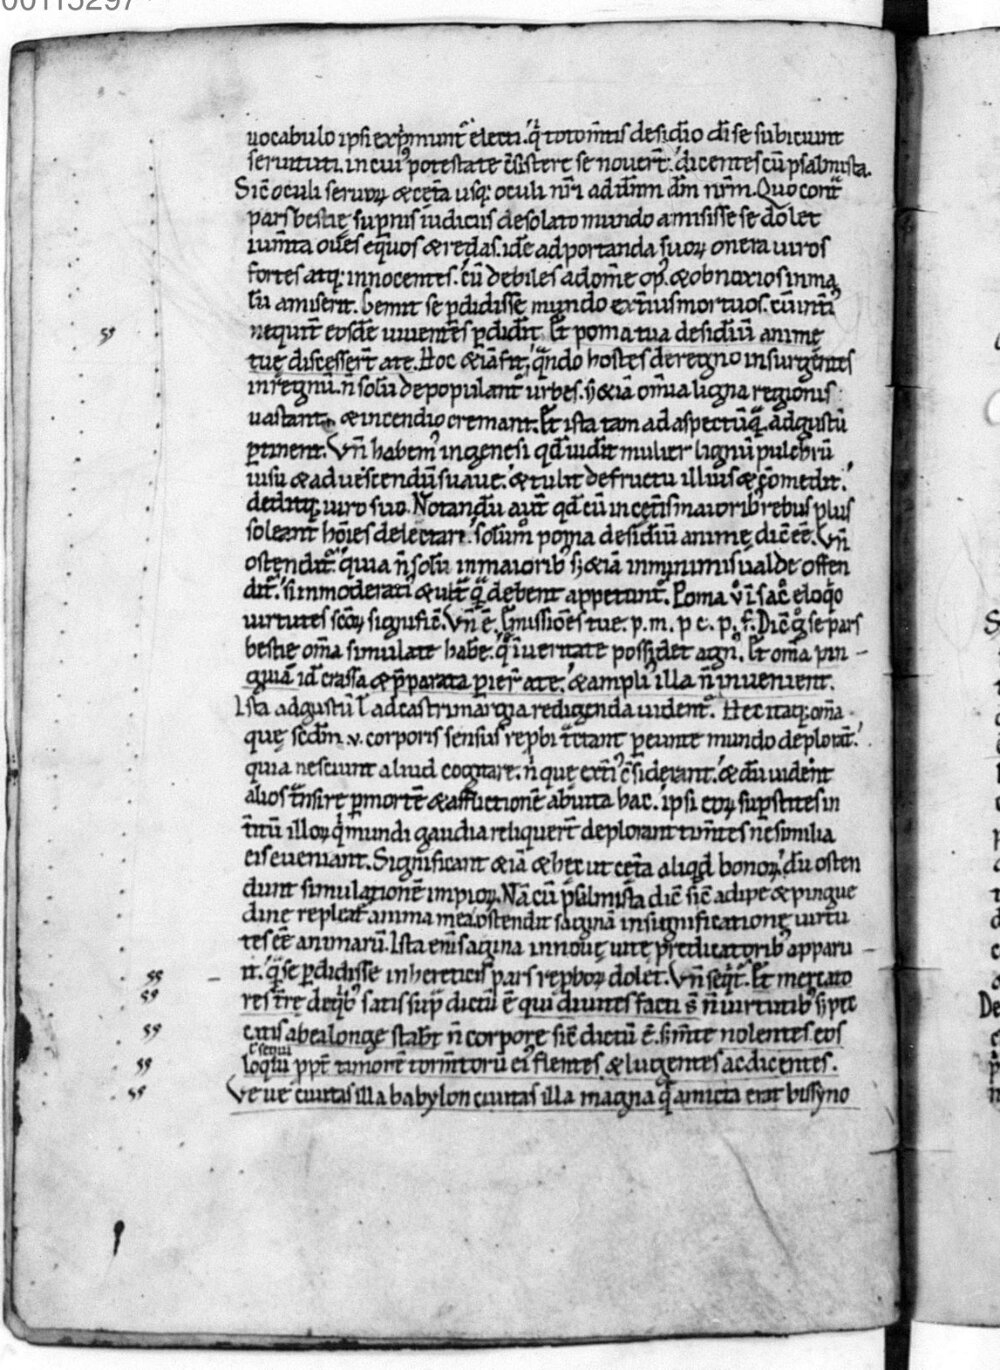 00115297
uocabulo ipsi exp̄munt᷑ electi. q̄ toto m̄tis desid̾io d̄i se subiciunt
seruituti. in cui᷒ potestate c̄sistere se nouer̄t. dicentes cū psalmista.
Sic̄ oculi seruoꝝ & cet̄a usq; oculi nr̄i ad dn̄m dm̄ nr̄m. Quo cont̄
pars bestię sup̄nis iudiciis desolato mundo amisisse se dolet
ium̄ta oues equos & redas. id ē ad portanda suoꝝ onera uiros
fortes atq; innocentes. cū debiles ad om̄e op᷒. & obnoxios in ma
lū amiserit. Gemit se p̄didisse mundo ext̾ius mortuos. cū int̾i᷒
nequit̾ eosdē uiuentes p̄didit. Et poma tua desid̾iū animę
tuę discesser̄t a te. Hoc & iā fit, q̄ndo hostes de regno insurgentes
in regnū. n̄ solū depopulant᷑ urbes. s; & iā om̄ia ligna regionis
uastant, & incendio cremant. Et ista tam ad aspectū q̄ ad gustū
ptinent. Vn̄ habem᷒ in genesi qd̄ uidit mulier lignū pulchrū
uisu & ad uescendū suaue. & tulit de fructu illius & comedit.
deditq; uiro suo. Notandū aut̄ qd̄ cū in cet̾is maiorib᷒ rebus plus
soleant hōies delectari. solum᷒ poma desid̾iū animę dic̄ ēē. Vn̄
ostendit᷑ quia n̄ solū in maiorib᷒ s; & iā in minimis ualde offen
dit᷑. si inmoderati᷒ & ult̄ q̄ debent appetunt᷑. Poma u̾ in sac̄ eloq̾o
uirtutes sc̄oꝝ signific̄. Vn̄ ē. Emissiōes tue. p. m. p c. p. f. Dic̄ g̾ se pars
bestie om̄a simulate habe. q̄ in ueritate possidet agn᷒. Et om̄a pin
guia id̄ crassa & p̄parata pier̄ a te. & ampli᷒ illa n̄ inuenient.
Ista ad gustū ł ad castrimargia redigenda uident᷑. Hec itaq; om̄a
quę scd̄m .v. corporis sensus rep̾bi t̄ctant peunte mundo deplorāt.
quia nesciunt aliud cogitare. n̄ quę ext̾i᷒ c̄siderant. & dū uident
alios t̄nsire p mortē & afflictionē ab uita hac. ipsi eoꝝ sup̄stites in
t̾itū illoꝝ q̄ mundi gaudia reliquer̄t deplorant tim̄tes ne similia
eis eueniant. Significant & iā & hęc ut cet̾a aliqd̄ bonoꝝ. dū osten
dunt simulationē impioꝝ. Nā cū psalmista dic̄ sic̄ adipe & pingue
dine repleat᷑ anima mea. ostendit saginā in significatione uirtu
tes ēē animarū. Ista eni᷒ sagina in nouę uite predicatorib᷒ apparu
it. q̄ se p̄didisse in hereticis pars rep̾boꝝ dolet. Vn̄ seq̾t᷑. Et mercato
res t̄re de q̾b᷒ satis sup̄ dictū ē qui diuites facti s̄ n̄ uirtutib᷒ s; pec
catis ab ea longe stabt̄ n̄ corpore sic̄ dictū ē. s; m̄te nolentes eos
ł sequi
loqui ppt̾ timorē torm̄torū ei᷒ flentes & lugentes ac dicentes.
Ve ue ciuitas illa babylon ciuitas illa magna q̄ amicta erat bissyno